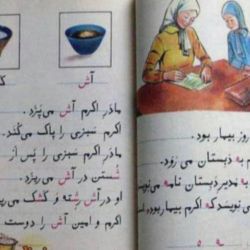 آش
مادَرِ اکرم آش می‌پَزَد.
اکرم سَبزی را پاک می‌کُنَد.
مادَرِ اکرم سَبزی را پَس از
شُستن در آش می‌ریزد.
او در آش رِشته و کَشک می‌ریزد
اکرم و امین آش را دوست
روز بیمار بود.
به دَبِستان می‌رَوَد.
به مُدیرِ دَبِستان نامه می‌نویسَد
می‌نویسد که اکرم بیمار بوده است